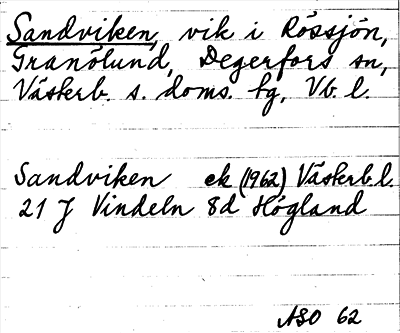 Sandviken, vik i Rössjön,
Granölund, Degerfors sn,
Västerb. s. doms. tg, Vb l.
Sandviken ek (1962) Västerb.l.
21 J Vindeln 8d Högland
ASO 62